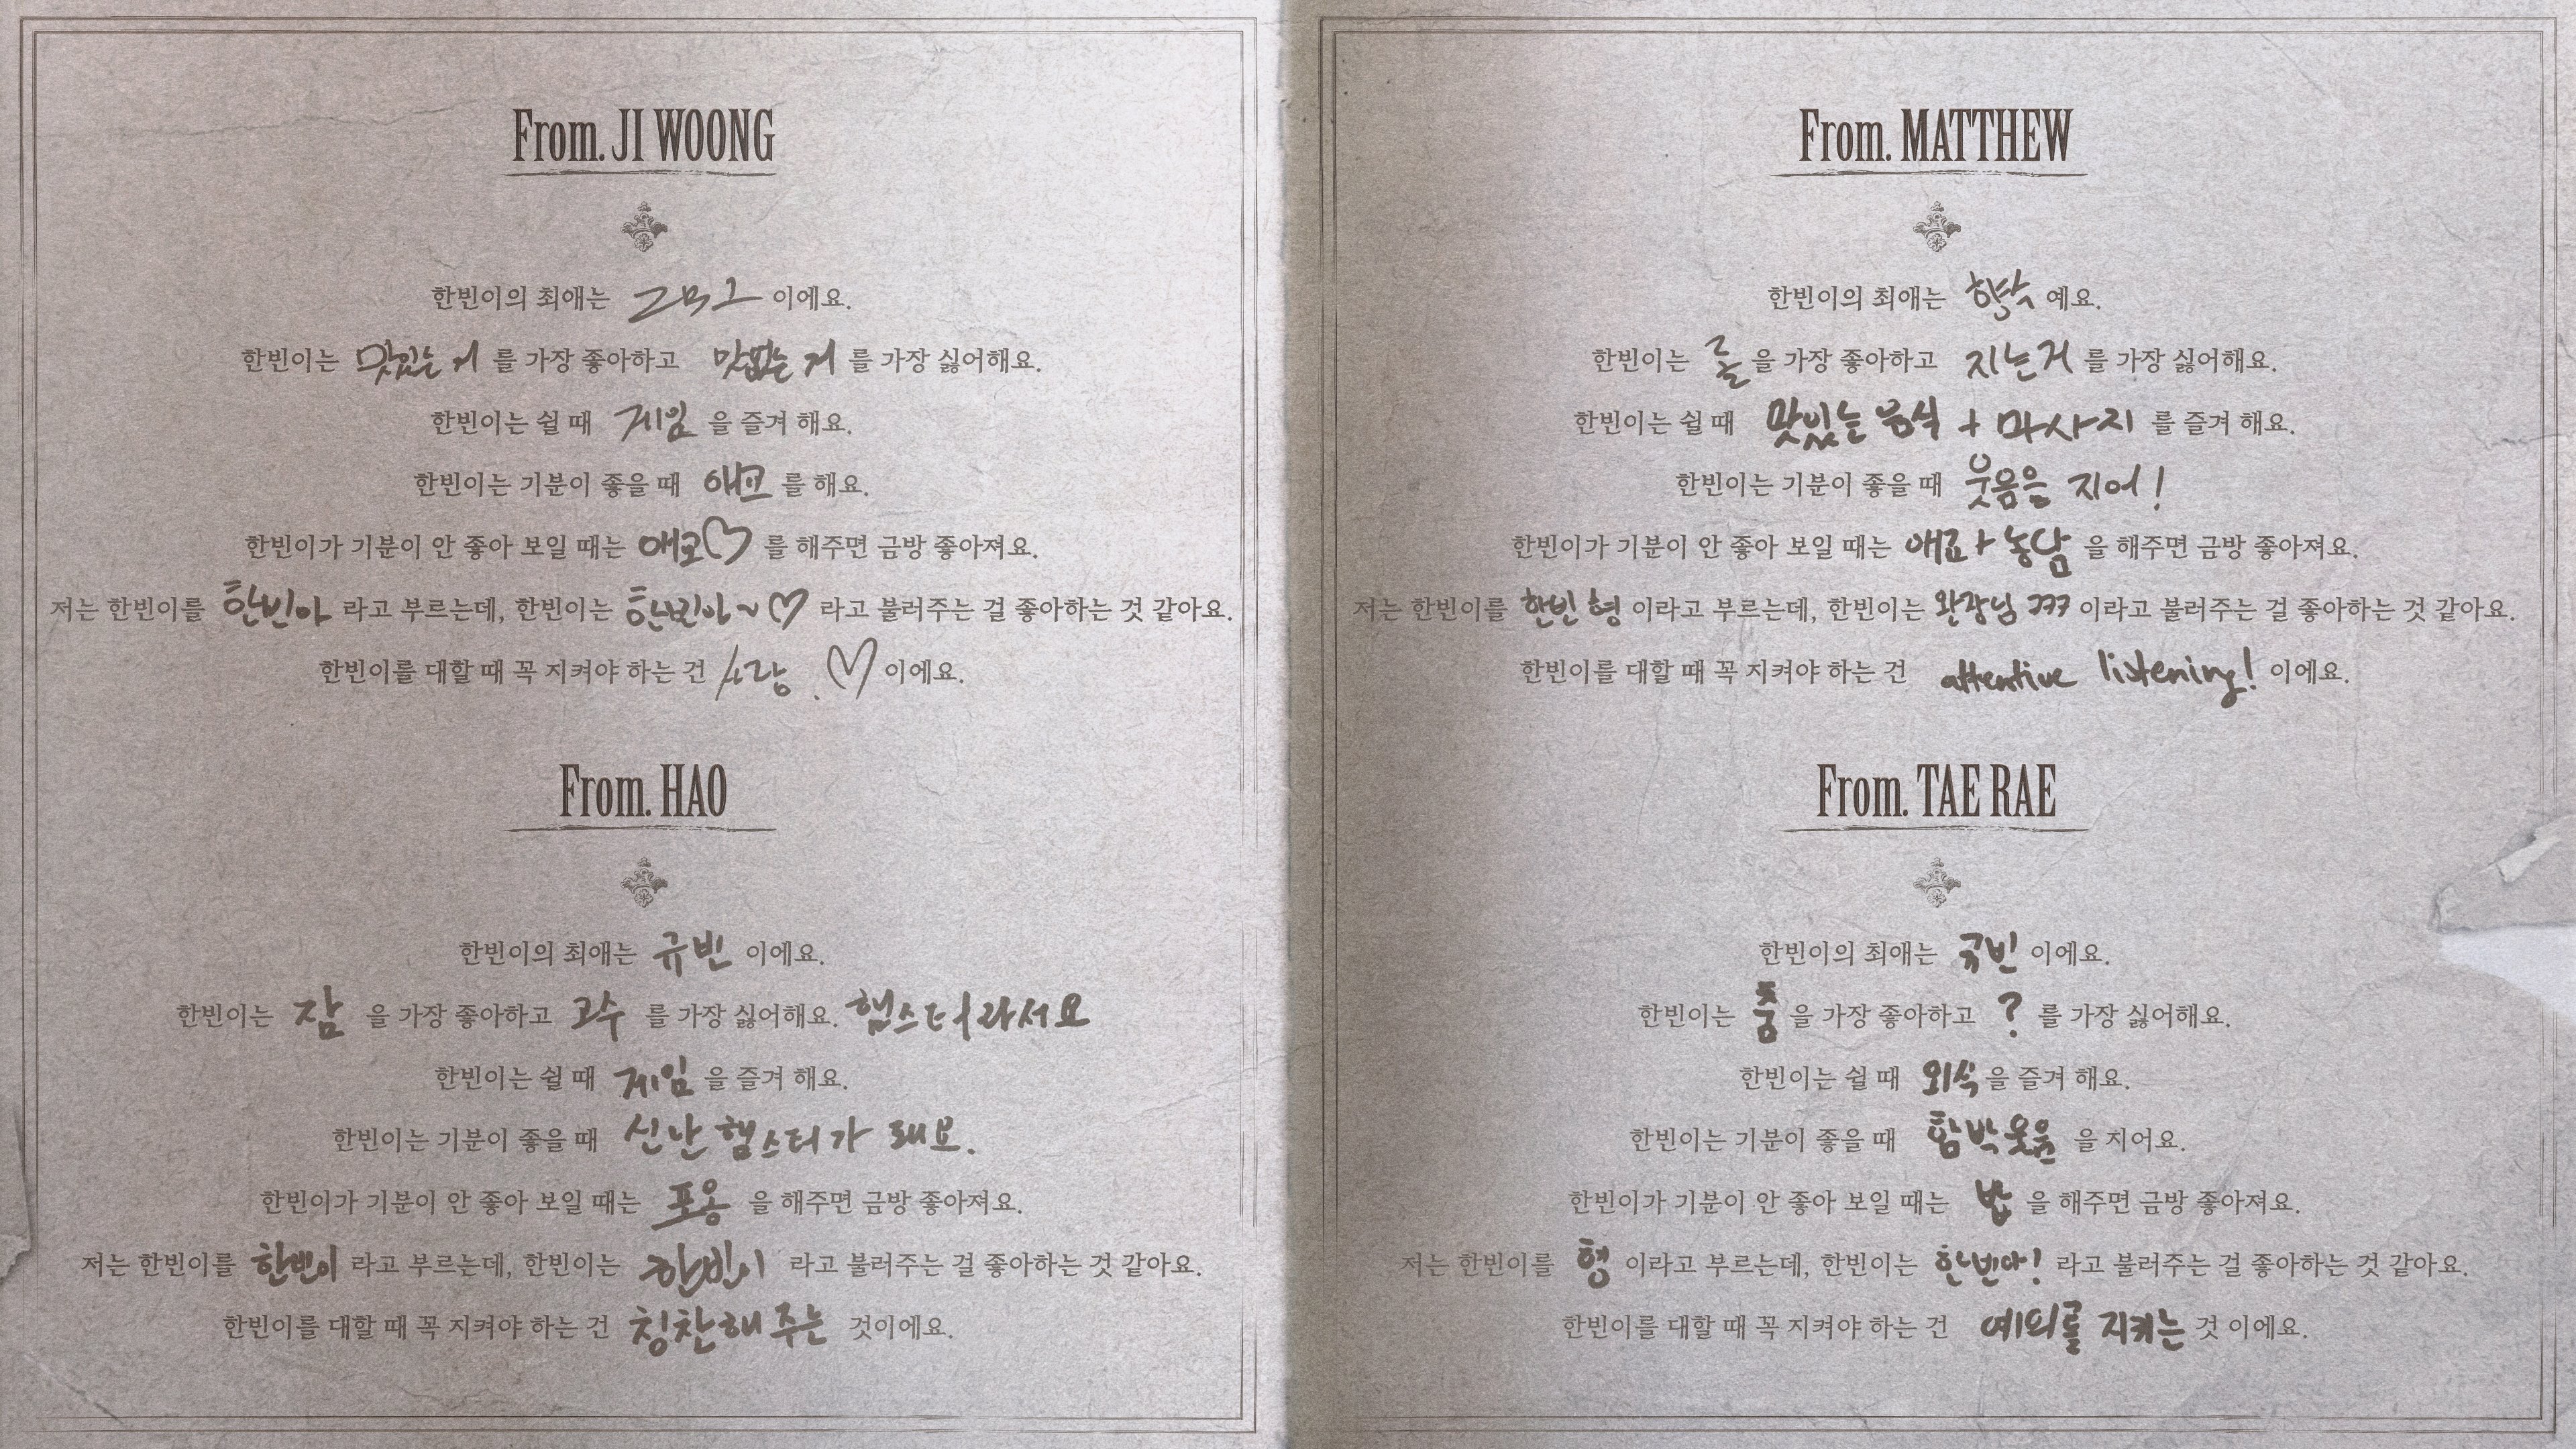 From. JI WOONG
한빈이의 최애는 이에요.
한빈이는 맛있는 거 를 가장 좋아하고 맛없는 거 를 가장 싫어해요.
한빈이는 쉴 때 게임 을 즐겨 해요.
한빈이는 기분이 좋을 때 애교 를 해요.
한빈이가 기분이 안 좋아 보일 때는 애교♡ 를 해주면 금방 좋아져요.
저는 한빈이를 한빈아 라고 부르는데, 한빈이는 한빈아~♡ 라고 불러주는 걸 좋아하는 것 같아요.
한빈이를 대할 때 꼭 지켜야 하는 건 사랑.♡ 이에요.
From. HAO
한빈이의 최애는 규빈 이에요.
한빈이는 잠 을 가장 좋아하고 고수 를 가장 싫어해요. 햄스터라서요
한빈이는 쉴 때 게임 을 즐겨 해요.
한빈이는 기분이 좋을 때 신난 햄스터가 돼요.
한빈이가 기분이 안 좋아 보일 때는 포옹 을 해주면 금방 좋아져요.
저는 한빈이를 한빈이 라고 부르는데, 한빈이는 한빈이 라고 불러주는 걸 좋아하는 것 같아요.
한빈이를 대할 때 꼭 지켜야 하는 건 칭찬해 주는 것이에요.
From. MATTHEW
한빈이의 최애는 예요.
한빈이는 롤 을 가장 좋아하고 지는거 를 가장 싫어해요.
한빈이는 쉴 때 맛있는 음식 + 마사지 를 즐겨 해요.
한빈이는 기분이 좋을 때 웃음을 지어!
한빈이가 기분이 안 좋아 보일 때는 애교 + 농담 을 해주면 금방 좋아져요.
저는 한빈이를 한빈 형 이라고 부르는데, 한빈이는 왕장님 ㅋㅋㅋ 이라고 불러주는 걸 좋아하는 것 같아요.
한빈이를 대할 때 꼭 지켜야 하는 건 attentive listening! 이에요.
From. TAE RAE
한빈이의 최애는 규빈 이에요.
한빈이는 춤 을 가장 좋아하고 ? 를 가장 싫어해요.
한빈이는 쉴 때 외식 을 즐겨 해요.
한빈이는 기분이 좋을 때 함박웃음 을 지어요.
한빈이가 기분이 안 좋아 보일 때는 밥 을 해주면 금방 좋아져요.
저는 한빈이를 형 이라고 부르는데, 한빈이는 한빈아! 라고 불러주는 걸 좋아하는 것 같아요.
한빈이를 대할 때 꼭 지켜야 하는 건 예의를 지키는 것 이에요.